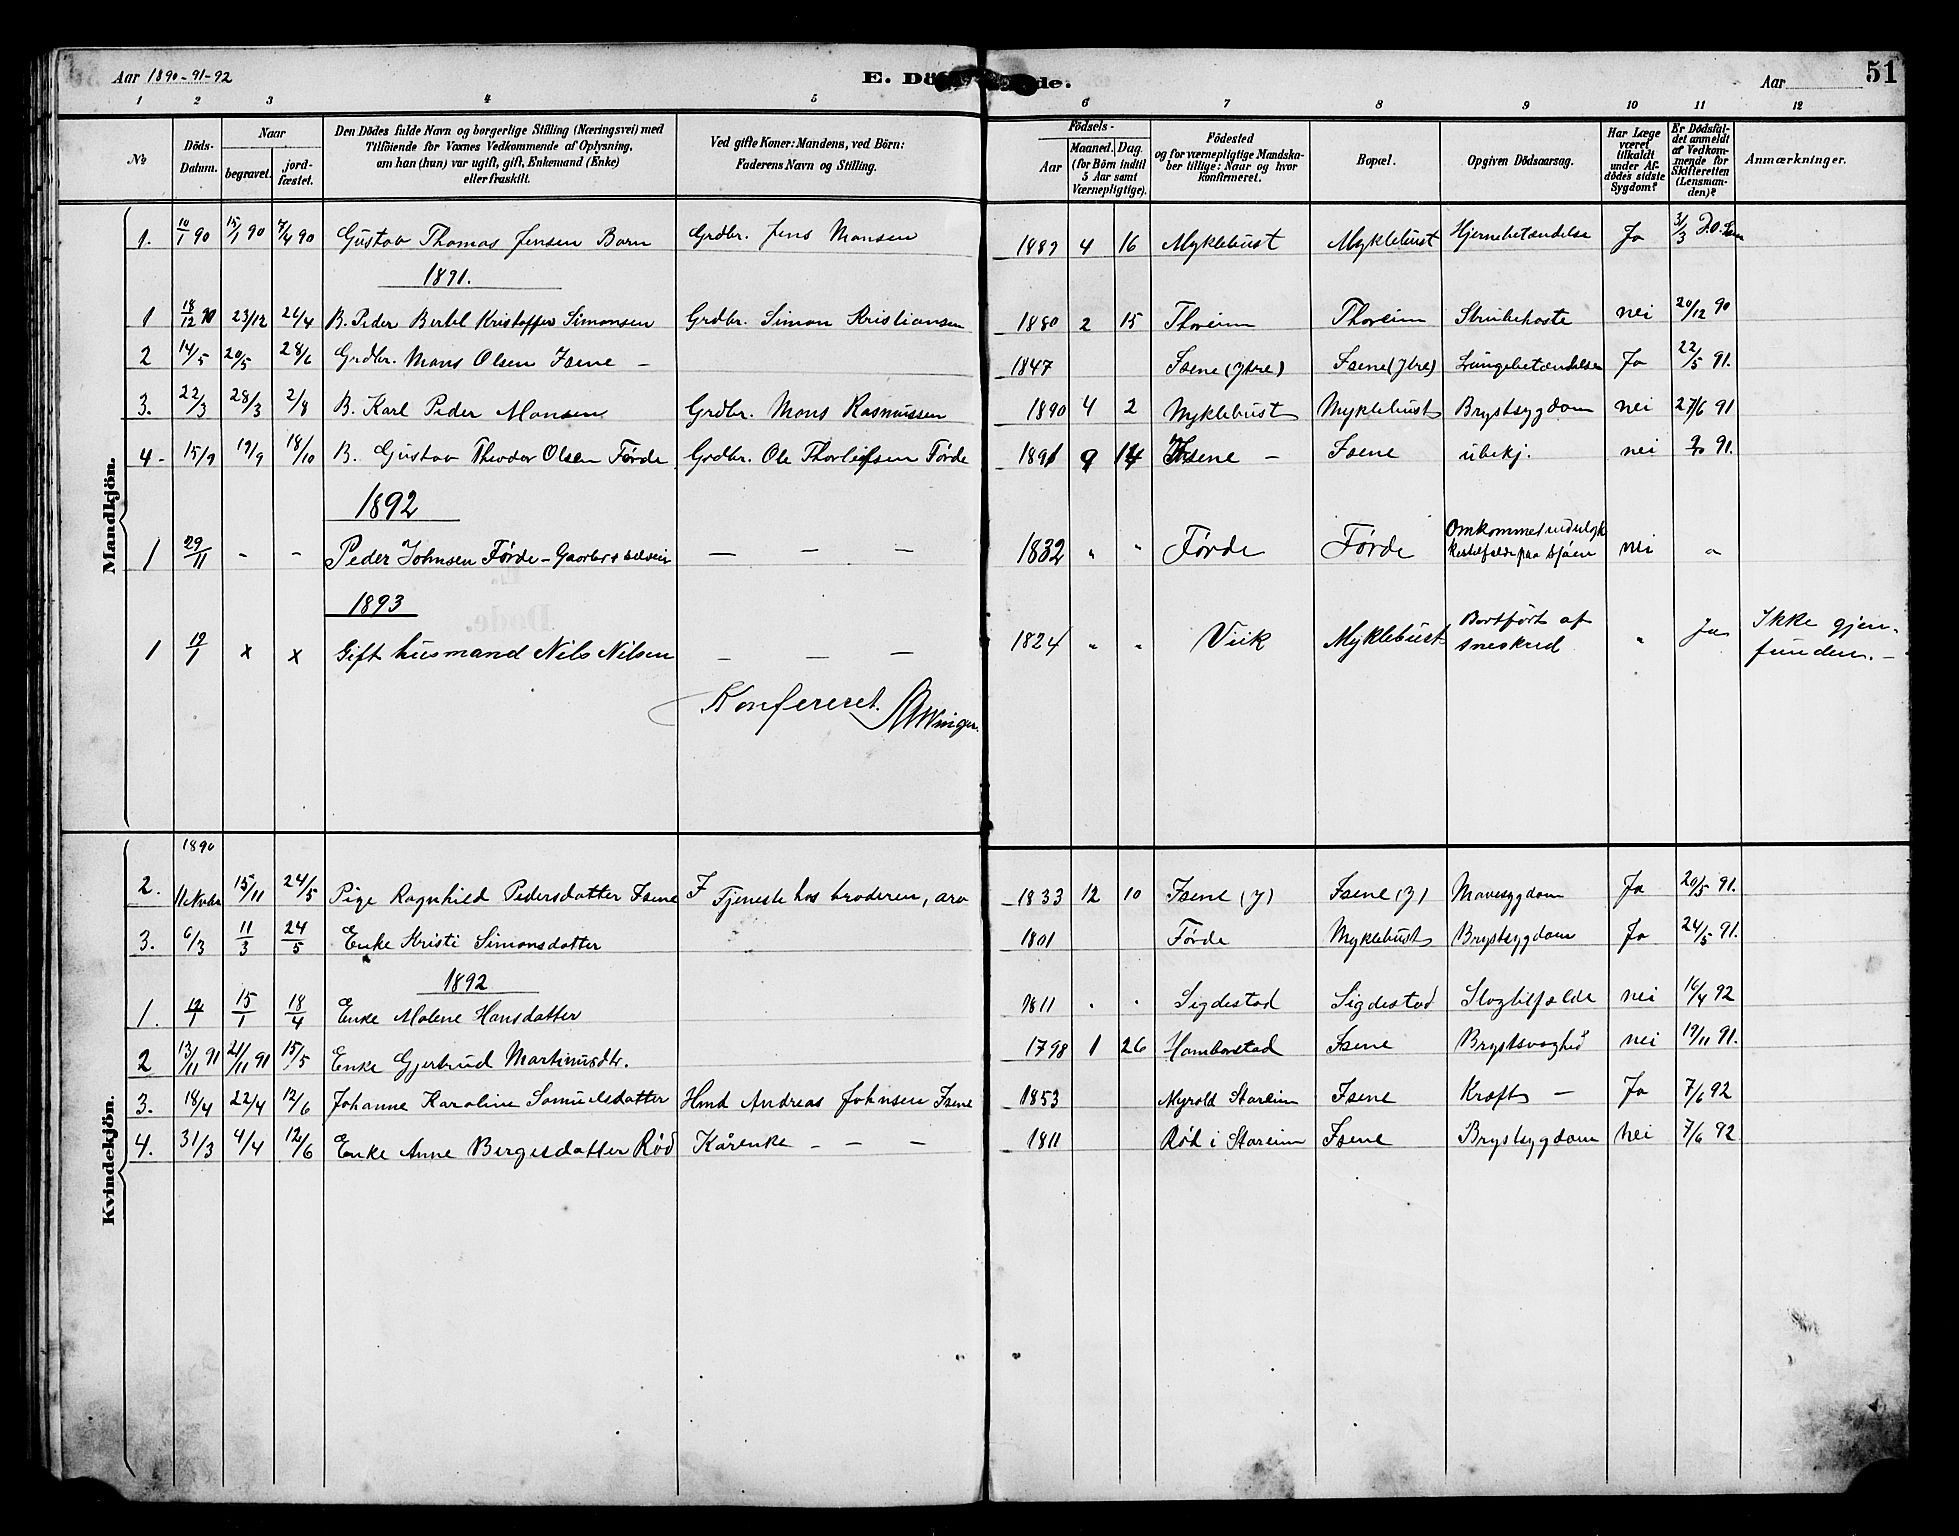 Aar 1890-91-92
E. Dö de.
Aar
51
1 2 3 4 5 6 7 8 9 10 11 12
No
Döds-Datum.
Naar
begravet.
jord-fæstet.
Den Dödes fulde Navn og borgerlige Stilling (Næringsvei) med
Tilföiende for Voxnes Vedkommende af Oplysning,
om han (hun) var ugift, gift, Enkemand (Enke)
eller fraskilt.
Ved gifte Koner: Mandens, ved Börn:
Faderens Navn og Stilling.
Födsels-
Aar
Maaned. Dag.
(for Börn indtil
5 Aar samt
Værnepligtige).
Födested
og for værnepligtige Mandska-
ber tillige: Naar og hvor
konfirmeret.
Bopæl.
Opgiven Dödsaarsag.
Har Læge
været
tilkaldt
under Af-
dödes sidste
Sygdom?
Er Dödsfal-
det anmeldt
af Vedkom-
mende for
Skifteretten
(Lensman-
den)?
Anmærkninger.
Mandkjön.
1. 10/1 90 15/1 90 7/4 90 Gustav Thomas Jensen Barn Grdbr. Jens Monsen 1889 4 16 Myklebust Myklebust Hjernebetændelse Ja 3/3
1891.
1 18/12 90 23/12 26/4 B. Peder Bertel Kristoffer Simonsen Grdbr. Simon Kristiansen 1880 2 15 Thoreim Thoreim Strubehoste nei 20/12 90
2 14/5 20/5 28/6 Grdbr. Mons Olsen Isene – 1847 Isene (Ytre) Isene (Ytre) Lungebetændelse Ja 22/5 91.
3. 22/3 28/3 2/8 B. Karl Peder Monsen Grdbr. Mons Rasmussen 1890 4 2 Myklebust Myklebust Brystsygdom nei 27/6 91
4 - 15/9 19/9 18/10 B. Gustav Theodor Olsen Førde Grdbr. Ole Thorleifsen Førde 1891 9 14 Isene – Isene ubekj. nei 91.
1892
1 29/11 - - Peder Johnsen Førde – – – – 1832 " " Førde Førde Omkommet ved paa sjøen nei "
1893
1 12/1 x x Gift husmand Nils Nilsen – – – 1824 " " Viik Myklebust Bortført af sneskred " Ja Ikke gjen-
funden. –
Konfereret.
Kvindekjön.
1890
2. 15/11 24/5 Pige Ragnhild Pedersdatter Isene F Tjeneste hos broderen, 1833 12 10 Isene (Y) Isene (Y) Mavesygdom Ja 20/5 91.
3. 6/3 11/3 24/5 Enke Kristi Simonsdatter 1801 Førde Myklebust Brystsygdom Ja 24/5 91.
1892
1. 12/1 15/1 18/4 Enke Malene Hansdatter 1811 " " Sigdestad Sigdestad Slagtilfælde nei 16/4 92
2 13/11 91 21/11 91 15/5 Enke Gjertrud Martinusdtr. 1798 1 26 Hamborstad Isene Brystsvaghed nei 19/11 91.
3. 18/4 22/4 12/6 Johanne Karoline Samuelsdatter Hmd Andreas Johnsen Isene 1853 Myrold Stareim Isene Kræft – Ja 7/6 92
4. 31/3 4/4 12/6 Enke Anne Bergesdatter Rød Kårenke – – – 1811 Rød i Stareim Isene Brystsygdom Nei 7/6 92